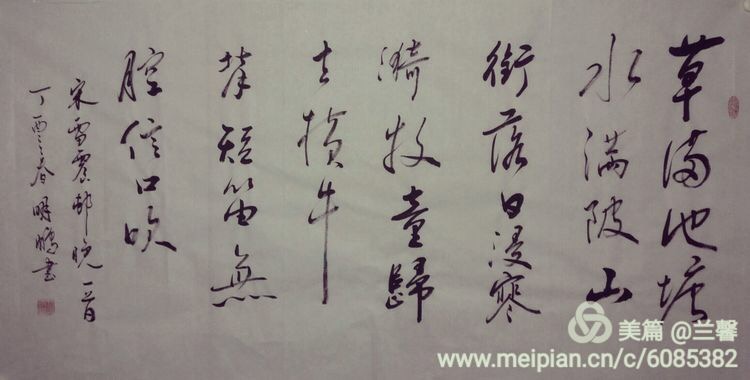 草满池塘
水满陂山
衔落日浸寒
漪牧童歸
去横牛
背短笛無
腔信口吹
宋雷震邨晚一首
丁酉春明鹏書
美篇 @兰馨
www.meipian.cn/c/6085382